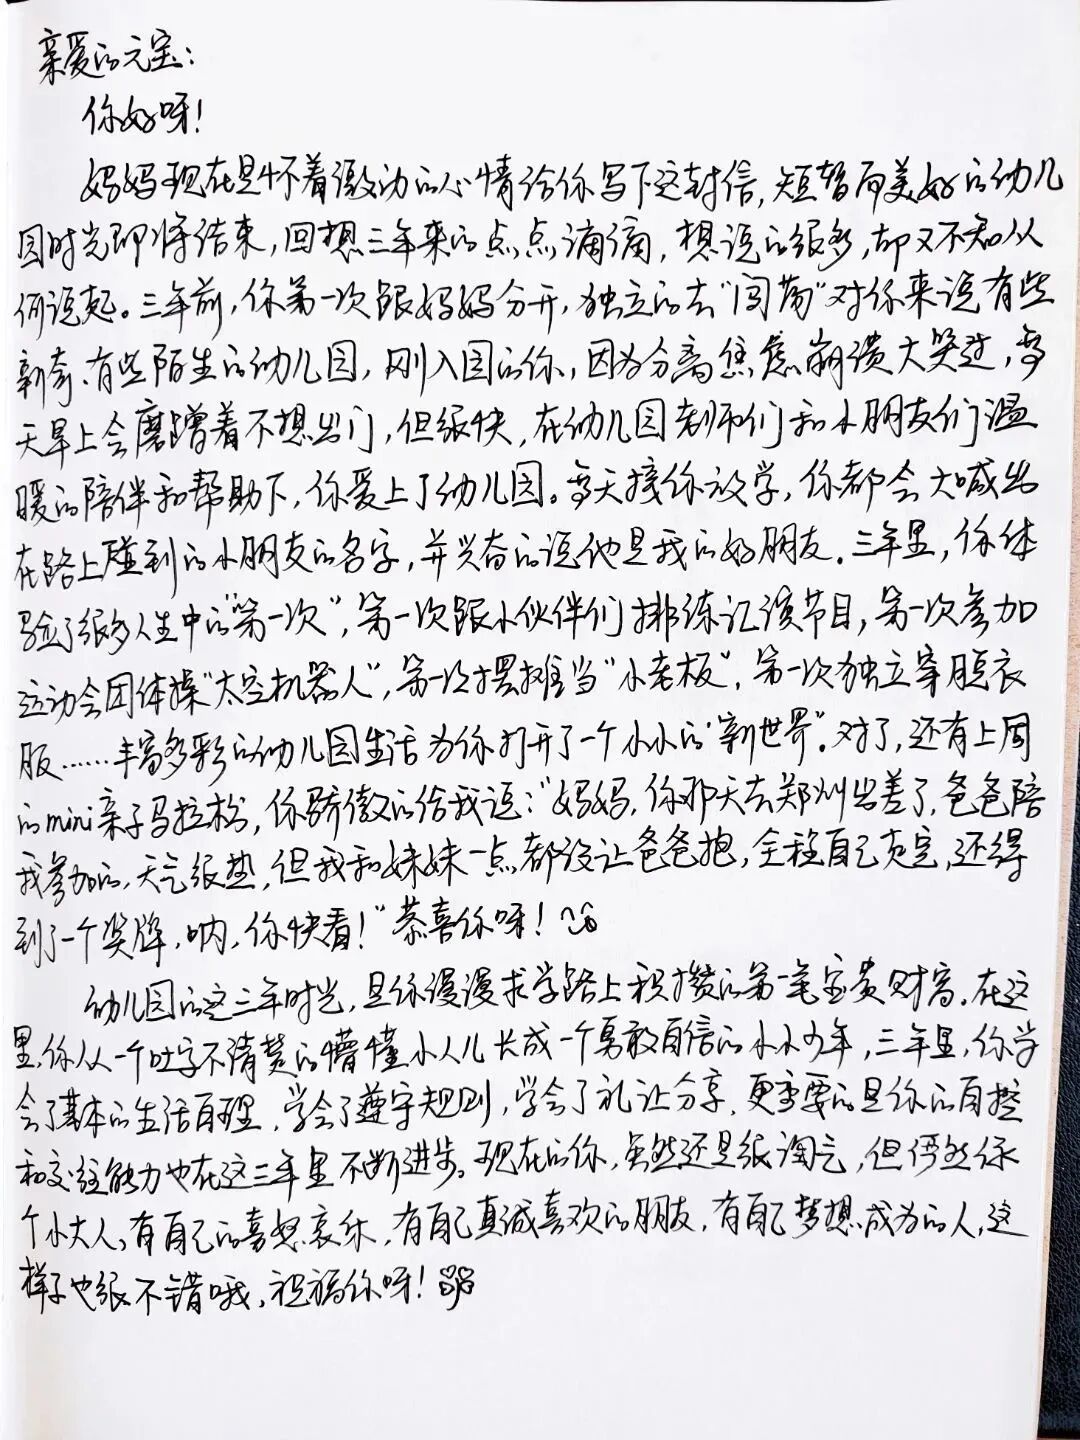 亲爱的元宝：
你好呀！
妈妈现在是怀着激动的心情给你写下这封信，短暂而美好的幼儿
园时光即将结束，回想三年来的点点滴滴，想说的很多，却又不知从
何说起。三年前，你第一次跟妈妈分开，独立的去“闯荡”对你来说有些
新奇、有些陌生的幼儿园，刚入园的你，因为分离焦虑崩溃大哭过，每
天早上会磨蹭着不想出门，但很快，在幼儿园老师们和小朋友们温
暖的陪伴和帮助下，你爱上了幼儿园。每天接你放学，你都会大喊出
在路上碰到的小朋友的名字，并兴奋的说他是我的好朋友。三年里，你体
验了很多人生中的“第一次”，第一次跟小伙伴们排练诙谐节目，第一次参加
运动会团体操“太空机器人”，第一次摆摊当“小老板”，第一次独立穿脱衣
服……丰富多彩的幼儿园生活为你打开了一个小小的“新世界”。对了，还有上周
的mini亲子马拉松，你骄傲的给我说：“妈妈，你那天去郑州出差了，爸爸陪
我参加的，天气很热，但我和妹妹一点都没让爸爸抱，全程自己走完，还得
到了一个奖牌，呐，你快看！”恭喜你呀！
幼儿园的这三年时光，是你漫漫求学路上积攒的第一笔宝贵财富。在这
里，你从一个吐字不清楚的懵懂小人儿长成一个勇敢自信的小小少年，三年里，你学
会了基本的生活自理，学会了遵守规则，学会了礼让分享，更重要的是你的自控
和交往能力也在这三年里不断进步。现在的你，虽然还是很淘气，但俨然像
个小大人，有自己的喜怒哀乐，有自己真诚喜欢的朋友，有自己梦想成为的人，这
样子也很不错哦，祝福你呀！